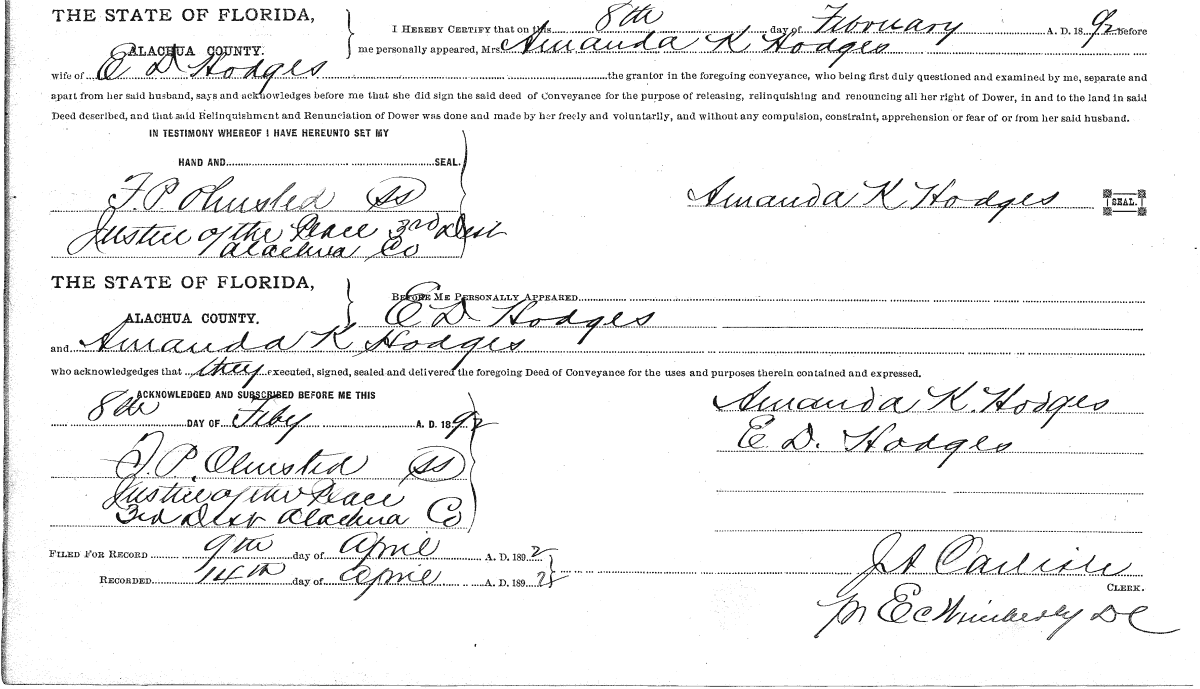 THE STATE OF FLORIDA,
ALACHUA COUNTY.
I HEREBY CERTIFY that on this 8th day of February A. D. 1892 before
me personally appeared, Mrs. Amanda K Hodges
wife of E D Hodges the grantor in the foregoing conveyance, who being first duly questioned and examined by me, separate and
apart from her said husband, says and acknowledges before me that she did sign the said deed of Conveyance for the purpose of releasing, relinquishing and renouncing all her right of Dower, in and to the land in said
Deed described, and that said Relinquishment and Renunciation of Dower was done and made by her freely and voluntarily, and without any compulsion, constraint, apprehension or fear of or from her said husband.
IN TESTIMONY WHEREOF I HAVE HEREUNTO SET MY
HAND AND SEAL.
F. P Olmsted SS
Amanda K Hodges SEAL.
Justice of the Peace 3rd Dist
Alachua Co
THE STATE OF FLORIDA,
ALACHUA COUNTY.
BEFORE ME PERSONALLY APPEARED
E D Hodges
and Amanda K Hodges
who acknowledges that they executed, signed, sealed and delivered the foregoing Deed of Conveyance for the uses and purposes therein contained and expressed.
ACKNOWLEDGED AND SUBSCRIBED BEFORE ME THIS
8th DAY OF Feby A. D. 1892
Amanda K. Hodges
E. D. Hodges
F. P. Olmsted SS
Justice of the Peace
3rd Dist Alachua Co
FILED FOR RECORD 9th day of April A. D. 1892
RECORDED 14th day of April A. D. 1892
J A Carlisle
CLERK.
E C Wimberly DC